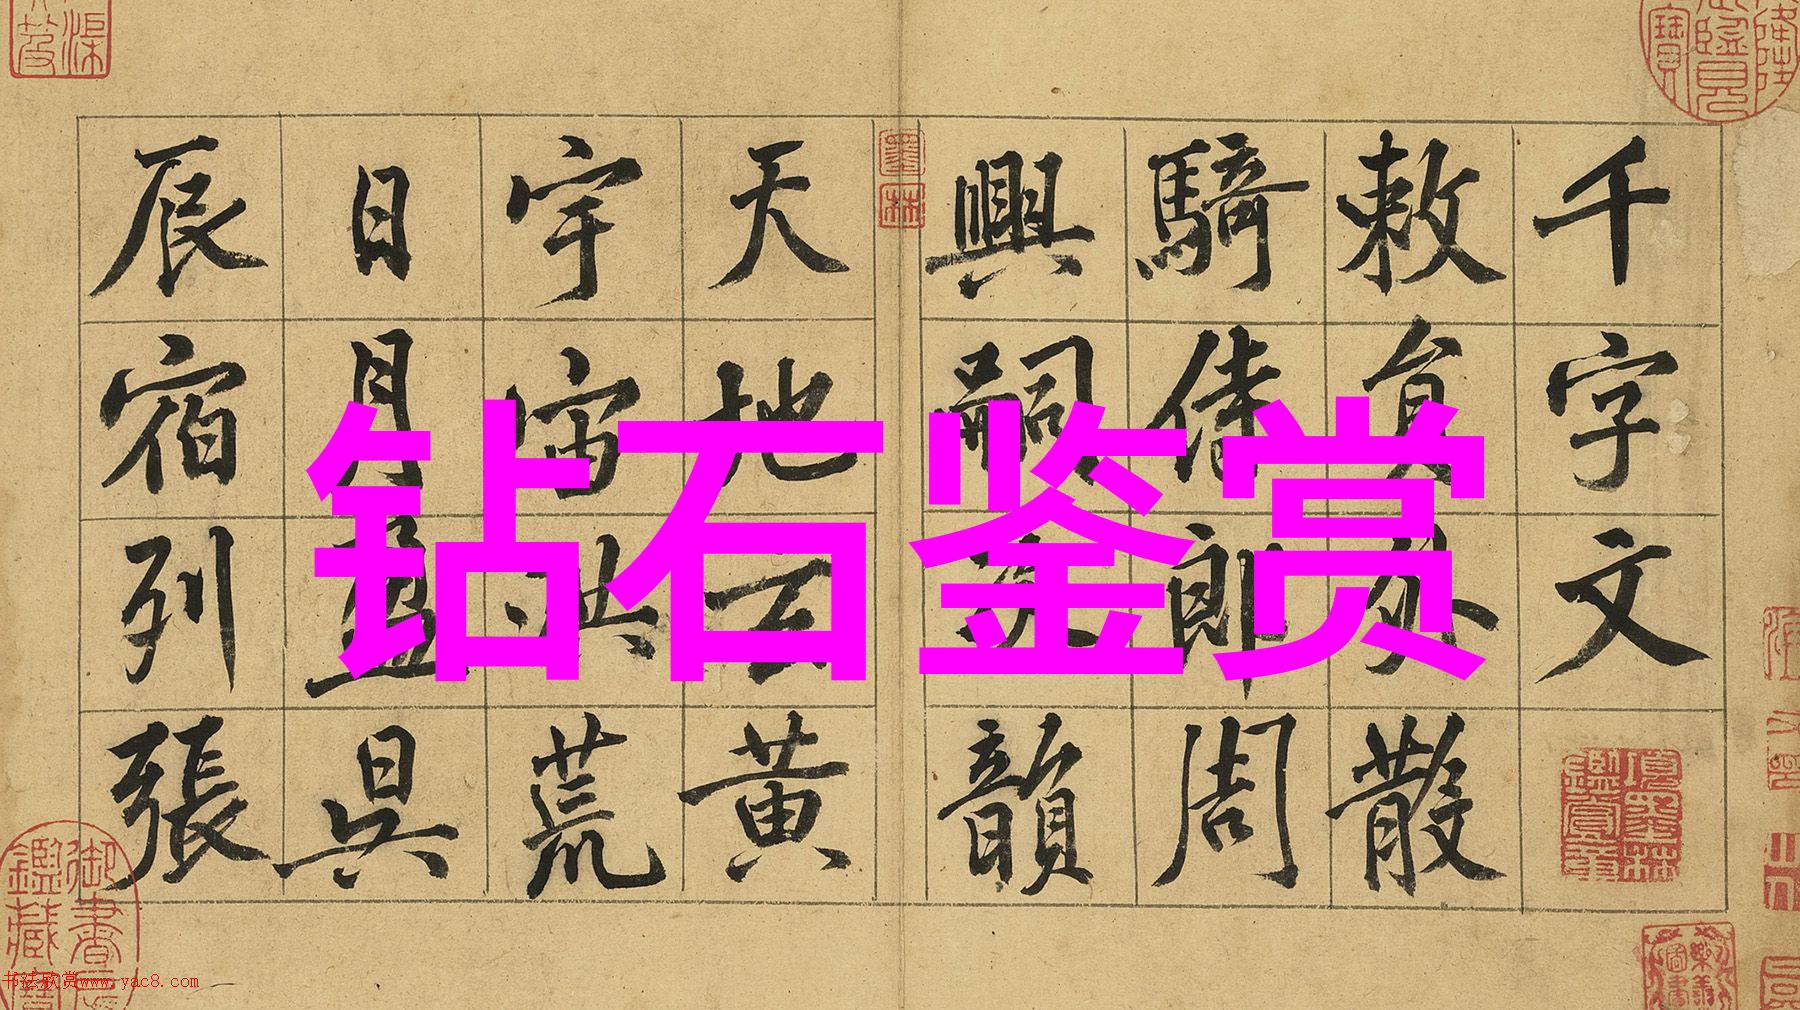 千字文
敕員外散
騎侍郎周
興嗣次韻
天地玄黄
宇宙洪荒
日月盈昃
辰宿列張
钻石鉴赏
墨林
項墨林鑑賞章
书法欣赏www.yac8.com